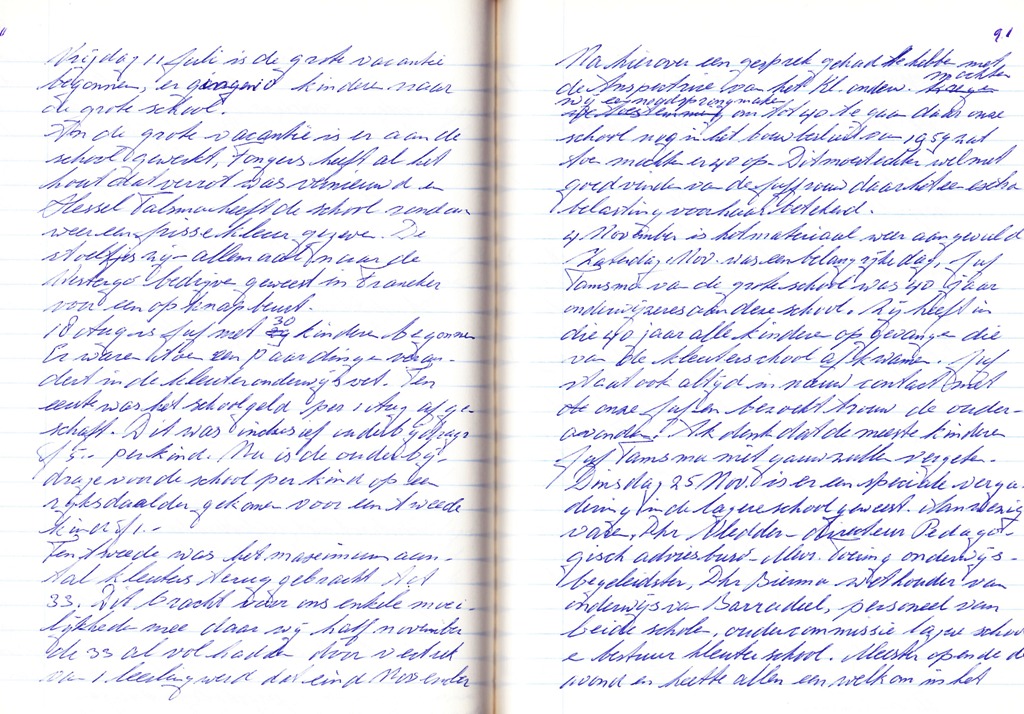 Vrijdag 11 Juli is de grote vacantie
begonnen, er gingen kinderen naar
de grote school.
In de grote vacantie is er aan de
school gewerkt, Tongers heeft al het
hout dat verrot was vernieuwd en
Hessel Talsma heeft de school rondom
weer een frisse kleur gegeven. De
stoeltjes zijn allemaal naar de
bedrijven geweest in Franeker
voor een opknapbeurt.
18 Aug is Juf met 30 kinderen begonnen
Er waren toen een paar dingen veran-
dert in de kleuteronderwijswet. Ten
eerste was het schoolgeld per 1 Aug afge-
schaft. Dit was inclusief ouderbijdrage
f 5.- per kind. Nu is de ouderbij-
drage voor de school per kind op een
rijksdaalder gekomen voor een tweede
kind f 1.-
Ten tweede was het maximum aan-
tal kleuters terug gebracht tot
33. Dit bracht voor ons enkele moei-
lijkheden mee daar wij half november
de 33 al vol hadden door vertrek
van 1 leerling werd dat eind November
91
Na hierover een gesprek gehad te hebben met
de Inspectrice van het Kl. onderw. mochten
wij om tot 40 te gaan daar onze
school nog in het bouwbesluit van 1959 zat
toen mochten er 40 op. Dit moest echter wel met
goedvinden van de Juffrouw daar het een extra
belasting voor haar betekend.
4 November is het materiaal weer aangevuld
Zaterdag Nov. was een belangrijke dag, Juf
Tamsma van de grote school was 40 jaar
onderwijzeres aan deze school. Zij heeft in
die 40 jaar alle kinderen opgevangen die
van de kleuterschool af kwamen. Juf
staat ook altijd in nauw contact met
onze Juf en bezoekt trouw de ouder-
avonden. Ik denk dat de meeste kinderen
Juf Tamsma niet gauw zullen vergeten.
Dinsdag 25 Nov. is er een speciale verga-
dering in de lagere school geweest. Aanwezig
waren, Dhr Kledder - directeur Pedago-
gisch adviesburo - Mevr. onderwijs-
begeleidster, Dhr Bierma wethouder van
onderwijs van Barradeel, personeel van
beide scholen, oudercommissie lagere school
e bestuur kleuterschool. Meester opende de
avond en heette allen een welkom in het